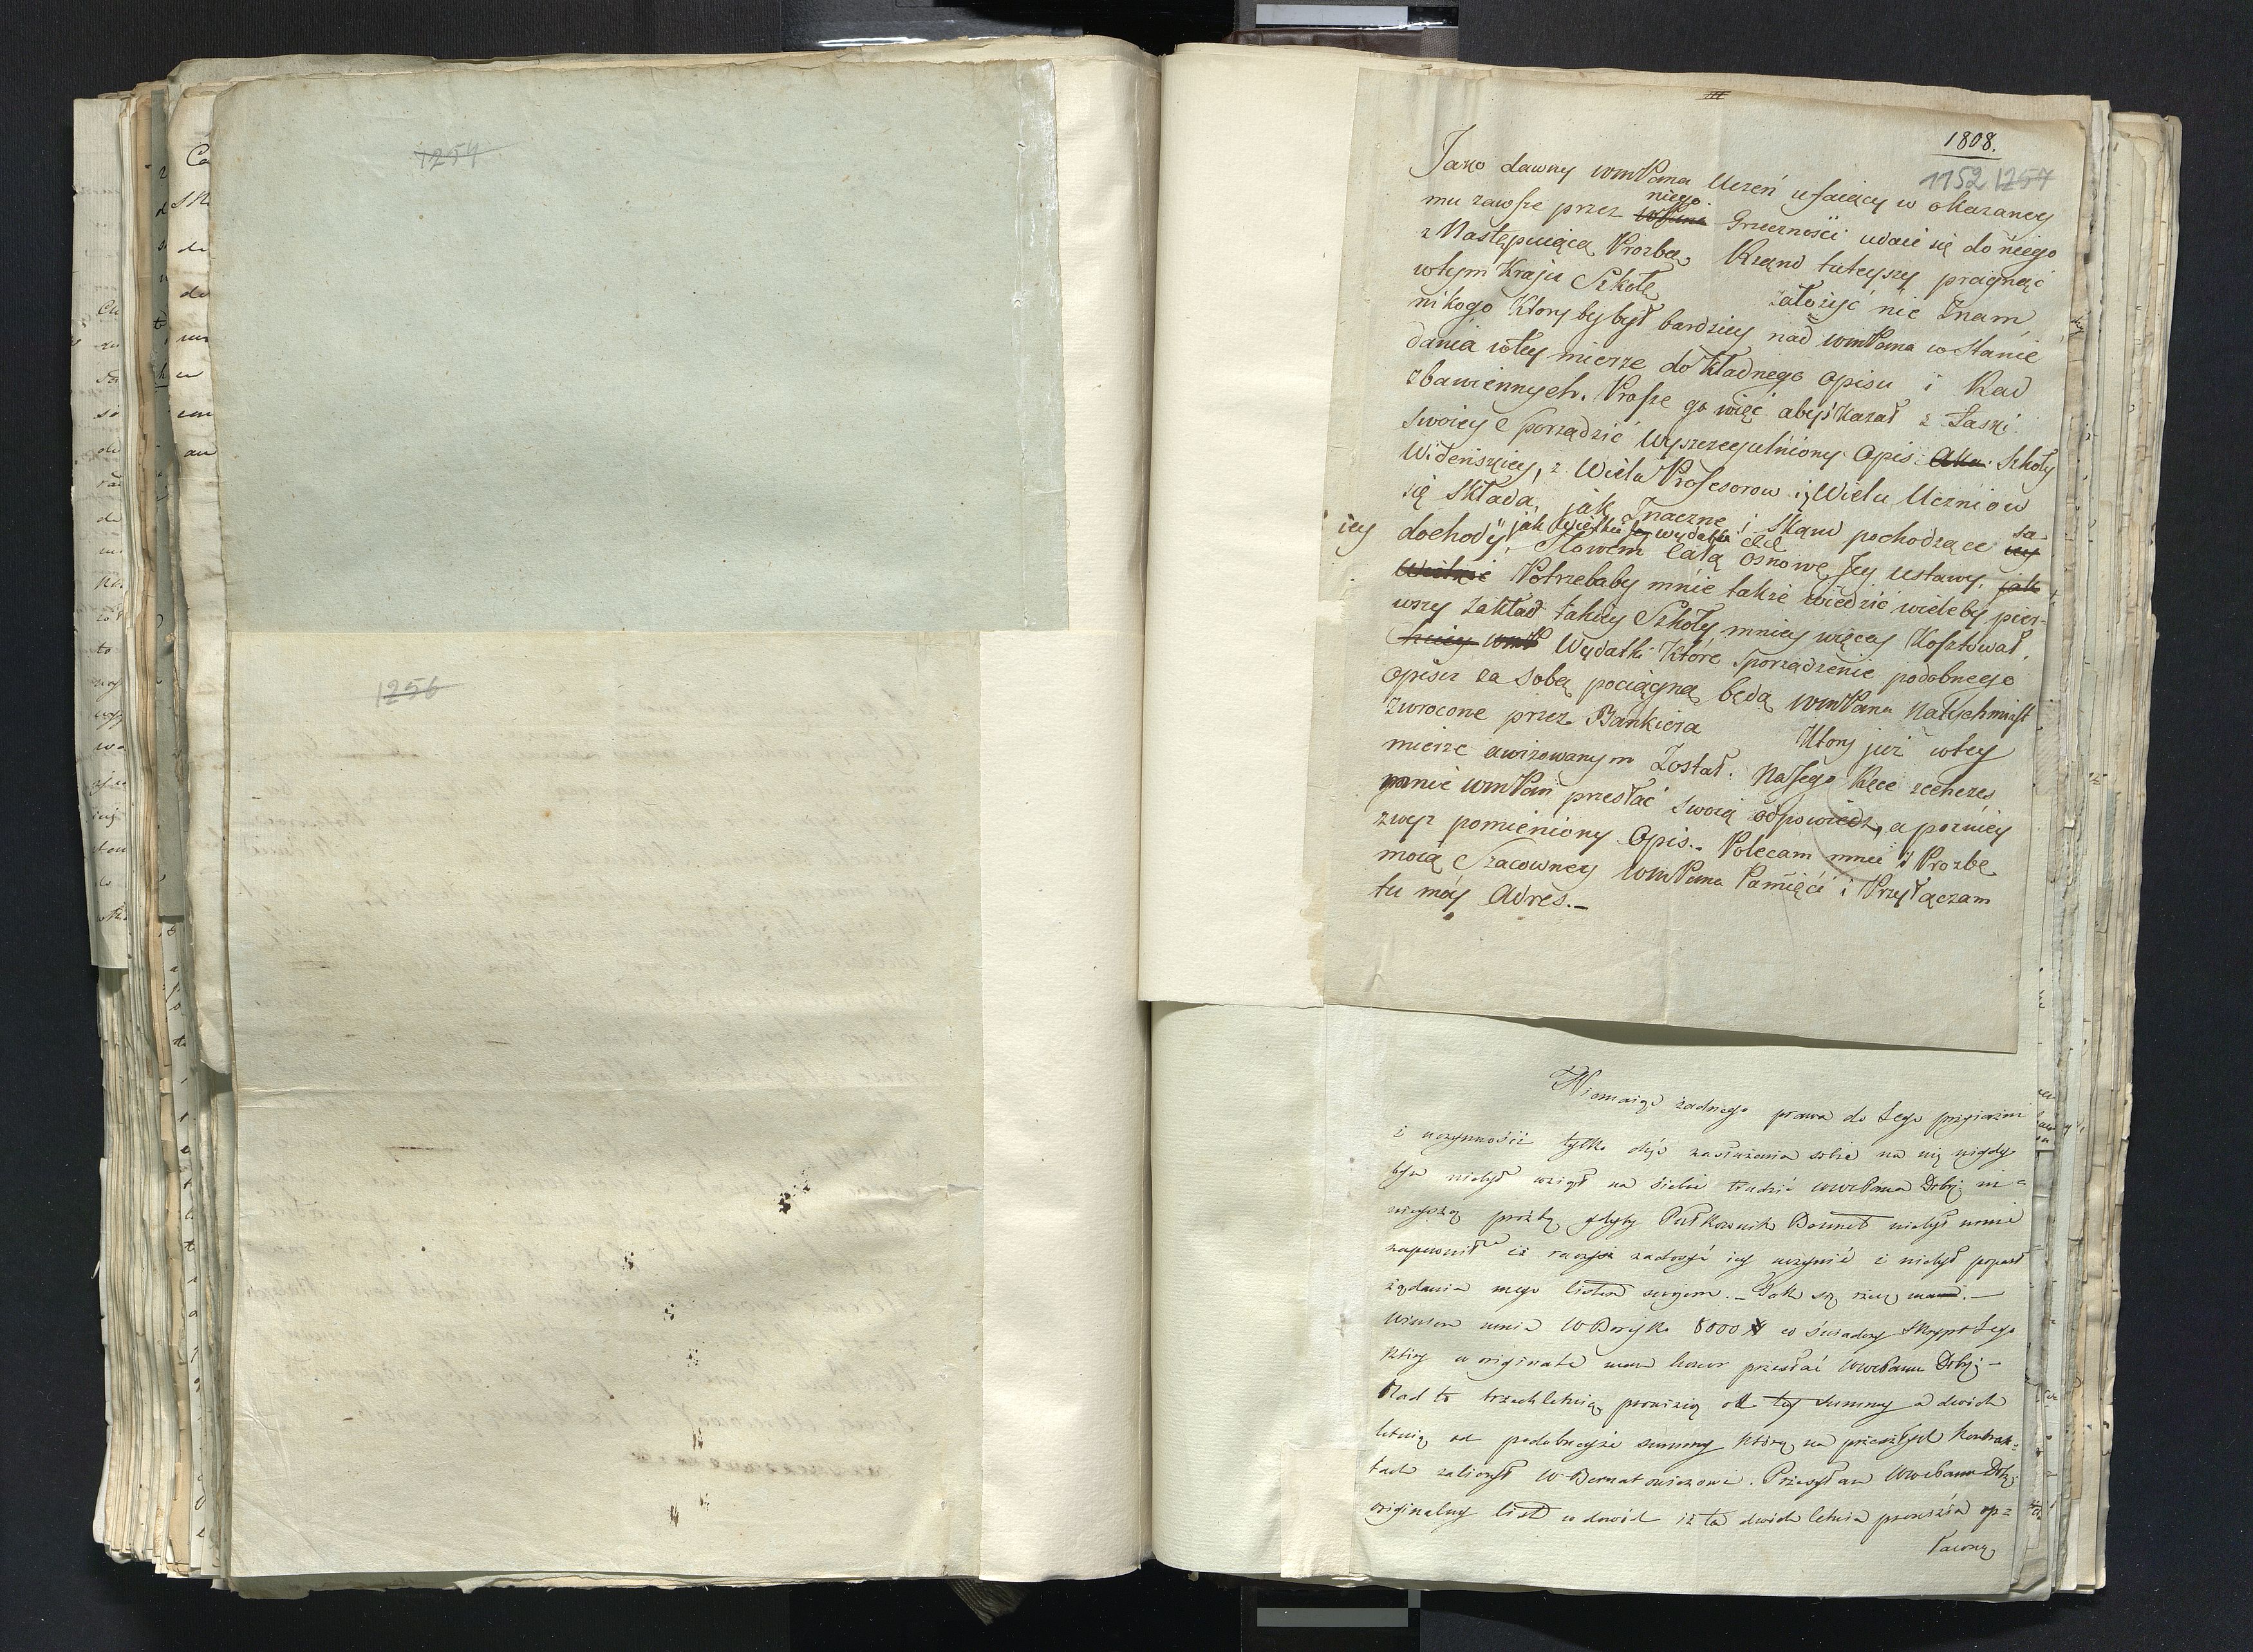 1254
1256
1808.
1152 1257
Jako dawny WmPana Uczeń ufaiący w okazaney
niego.
mu zawsze przez Grzeczności udaie się do niego
z Następuiącą Prozbą. Rząnd tuteyszy pragnąc
w tym Kraju Szkołę założyć nie Znam
nikogo Ktory by był bardziey nad WmPana w Stanie
dania w tey mierze dokładnego Opisu i Rad
zbawiennych. Prosze go więć abyś Kazał z Łaski
Swoiey Sporządzić Wyszczegulniony Opis Aka. Szkoły
Wideńskiey, z Wielu Profesorow i z Wielu Uczniow
się Składa, jak Znaczne i Skąnd pochodzące są
iey dochody, jak wielkie są wydatki
Słowem całą Osnowę Jey ustawy, jak
Potrzebaby mnie także wiedzieć wieleby pier-
wszy Zakład takiey Szkoły mniey więcey Kosztował.
Wydatki Które Sporządzenie podobnego
opisu za Sobą pociągną będą WmPanu Natychmiast
zwrocone przez Bankiera Ktory już w tey
mierze awizowanym Został. Na Jego Ręce zechcesz
mnie WmPan przesłać Swoią odpowiedz, a pozniey
zwyz pomieniony Opis. Polecam mnie i Prozbę
moią Szacowney WmPana Pamięći i Przyłączam
tu moy Adres.—
Niemaiąc żadnego prawa do Jego przyiazni
i uczynności tylko chęć zasłużenia sobie na nię nigdy
bym niebył wziął na siebie trudzić WwcPana Dobrz. ni-
nieyszą prozbą gdyby Pułkownik Bonnet niebył mnie
zapewnił iż raczysz zadosyć iey uczynić i niebył poparł
żądania mego listem swoim.— Jak się rzecz ma.—
Winien mnie W Borzyk. 8000 # co świadczy Skrypt Jego
Ktory w originale mam honor przesłać WwcPanu Dobrz.—
Nad to trzechletnią prowizią od tey Summy a dwoch
letnią od podobneyże summy którą na przeszłych kontrak-
tach zaliczył W Bernatowiczowi. Przesyłam WwcPanu Dobrz.
originalny list w dowod iż ta dwoch letnia prowizia op-
łaconą